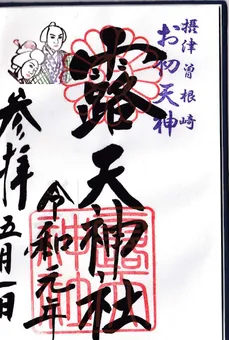 摂津曽根崎
お初天神
露天神社
令和元年
参拝五月一日